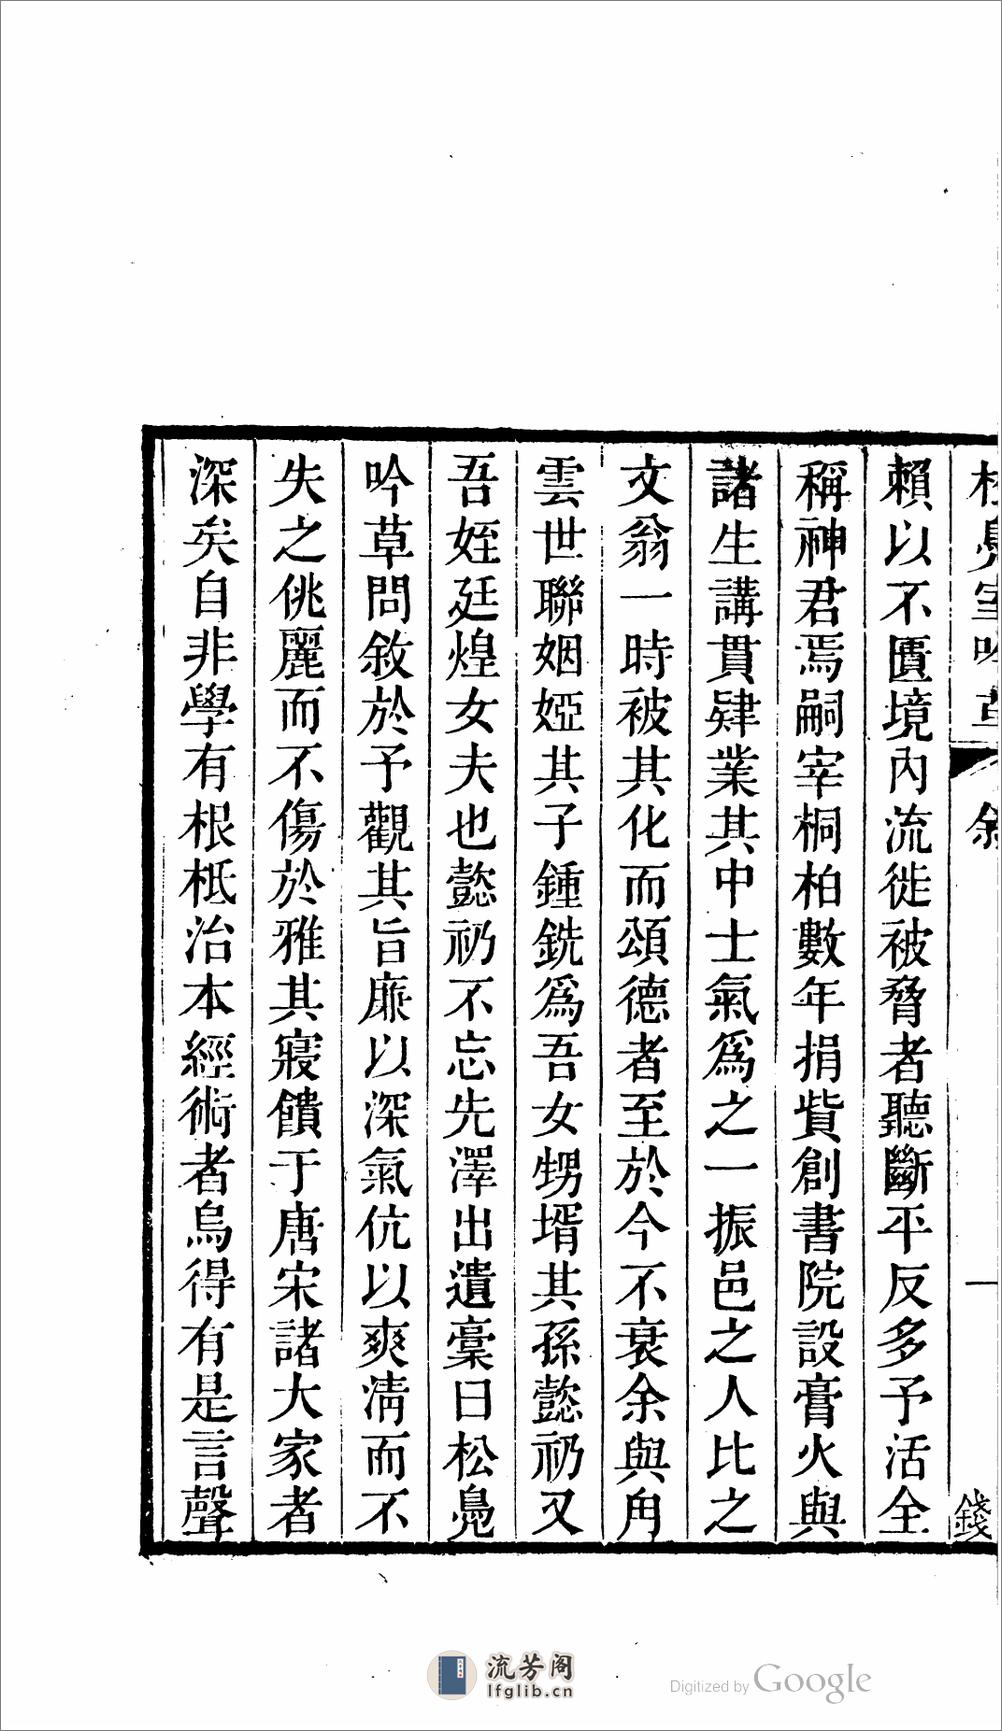 賴以不匱境內流徙被脅者聽斷平反多予活全
稱神君焉嗣宰桐柏數年捐貲創書院設膏火與
諸生講貫肄業其中士氣爲之一振邑之人比之
文翁一時被其化而頌德者至於今不衰余與冄
雲世聯姻婭其子鍾銑爲吾女甥壻其孫懿礽又
吾姪廷煌女夫也懿礽不忘先澤出遺稾曰松鳧
吟草問敘於予觀其旨廉以深氣伉以爽凊而不
失之佻麗而不傷於雅其寢饋于唐宋諸大家者
深矣自非學有根柢治本經術者烏得有是言聲
一
錢
流芳阁
lfglib.cn
Digitized by Google